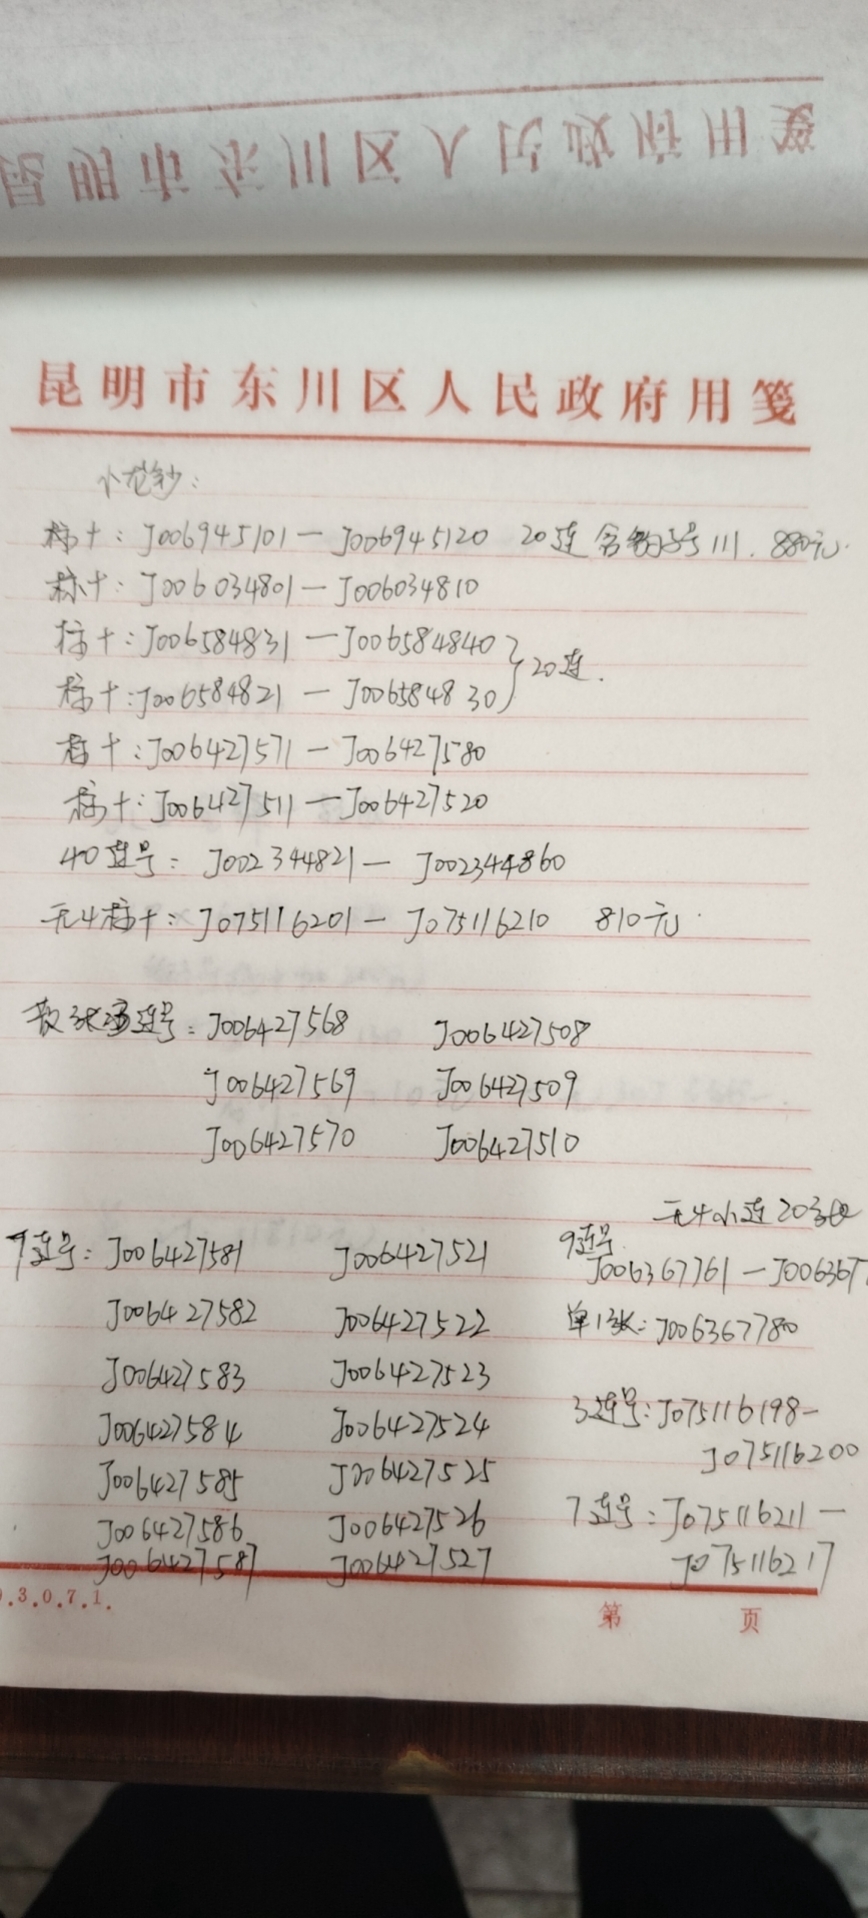 昆明市东川区人民政府用笺
昆明市东川区人民政府用笺
小龙钞：
标十：J006945101—J006945120 20连 含豹子号111. 880元.
标十：J006034801—J006034810
标十：J006584831—J006584840
标十：J006584821—J006584830 }20连.
标十：J006427571—J006427580
标十：J006427511—J006427520
40连号：J002344821—J002344860
无4标十：J075116201—J075116210 810元.
散3张连号：J006427568 J006427508
J006427569 J006427509
J006427570 J006427510
无4小连20张
7连号：J006427581 J006427521
9连号
J006367761—J006367
J006427582 J006427522
单1张：J006367780
J006427583 J006427523
3连号：J075116198—
J006427584 J006427524
J075116200
J006427585 J006427525
7连号：J075116211—
J006427586 J006427526
J006427587 J006427527
J075116217
.3.0.7.1.
第 页